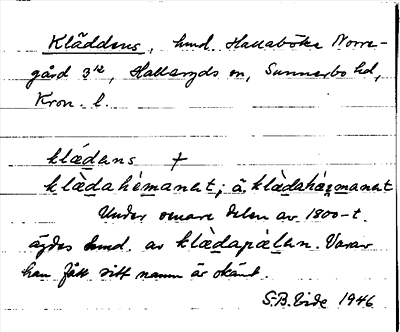 Kläddens, hmd. Hallaböke Norre-
gård 3¹², Hallaryds sn, Sunnerbo hd,
Kron. l.
klædans +
klædahémanat; ä. klædahęmanat
Under senare delen av 1800-t.
ägdes hmd. av klædapélan. Varav
han fått sitt namn är okänt.
S-B. Vide 1946